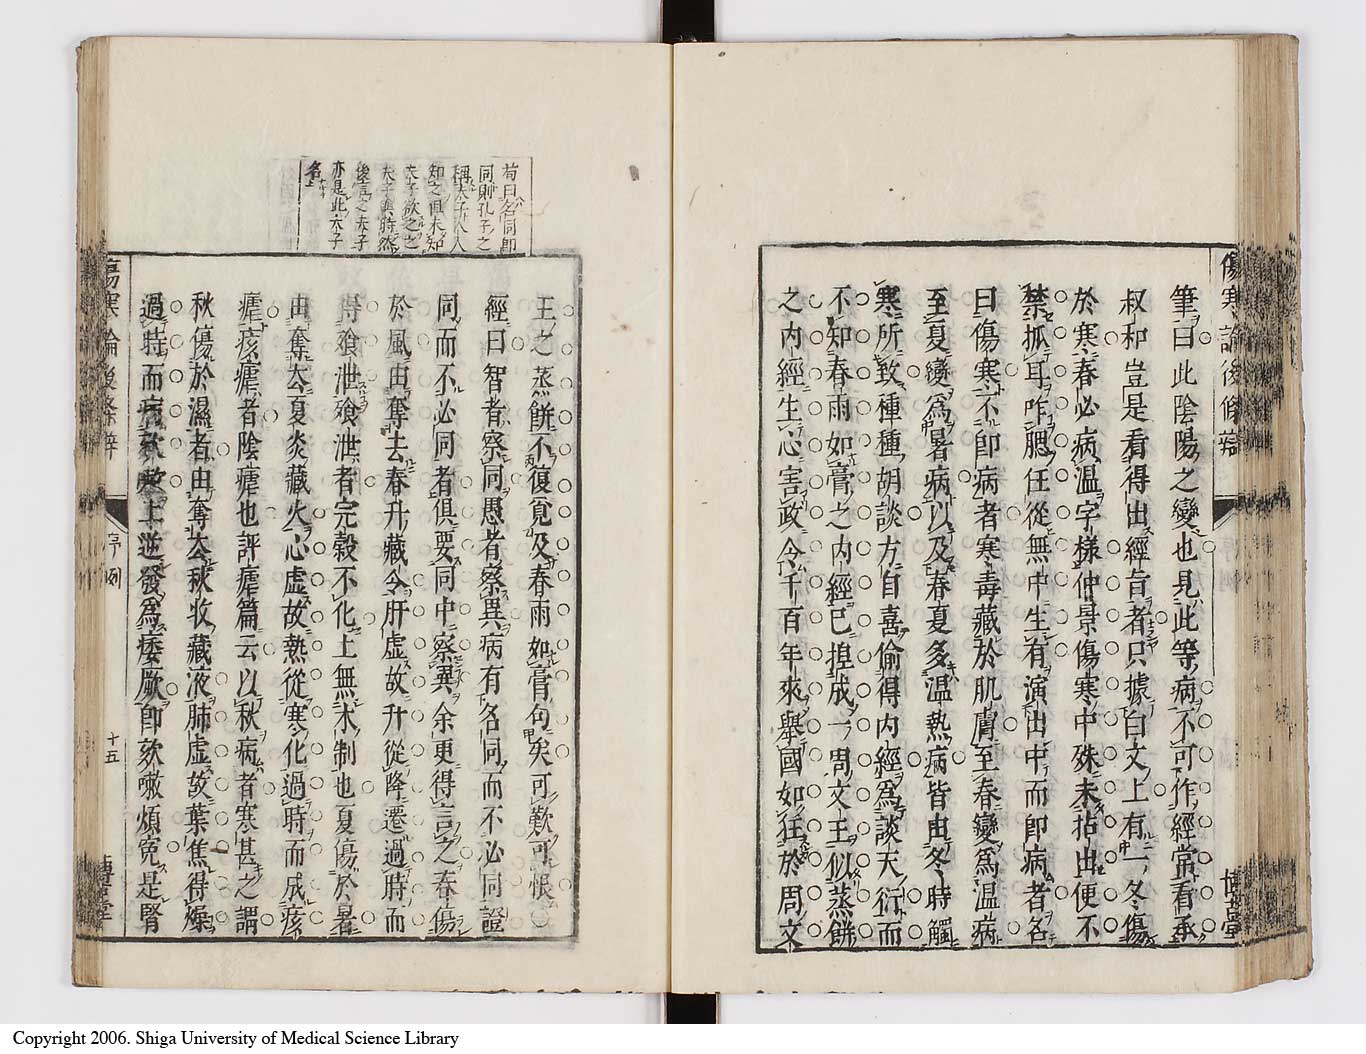 傷寒論後條辯
博古堂
筆曰此陰陽之變也見此等病不可作經常看承
叔和豈是看得出經旨者只據白文上有一冬傷
於寒春必病溫字樣仲景傷寒中殊未拈出便不
禁抓耳咋腮任從無中生有演出中而即病者名
曰傷寒不即病者寒毒藏於肌膚至春變爲溫病
至夏變爲暑病以及春夏多溫熱病皆由冬時觸
寒所致種種胡談方自喜偷得內經爲談天衍而
不知春雨如膏之內經已捏成一周文王似蒸餅
之內經生心害政令千百年來舉國如狂於周文
荀曰名同卽
同則孔子之
稱夫子人人
知之俱未知
夫子欲之之
夫子與時然
後言之夫子
亦是此夫子
名上
王之蒸餅不復覓及春雨如膏句矣可歎可恨
經曰智者察同愚者察異病有名同而不必同證
同而不必同者俱要同中察異余更得言之春傷
於風由奪去春升藏令肝虛故升從降遷過時而
得飧泄飧泄者完穀不化上無木制也夏傷於暑
由奪去夏炎藏火心虛故熱從寒化過時而成痎
瘧痎瘧者陰瘧也評瘧篇云以秋病者寒甚之謂
秋傷於濕者由奪去秋收藏液肺虛故葉焦得燥
過時而病欬欬上逆發爲痿厥卽欬嗽煩寃是腎
傷寒論後條辯
序例
十五
博古堂